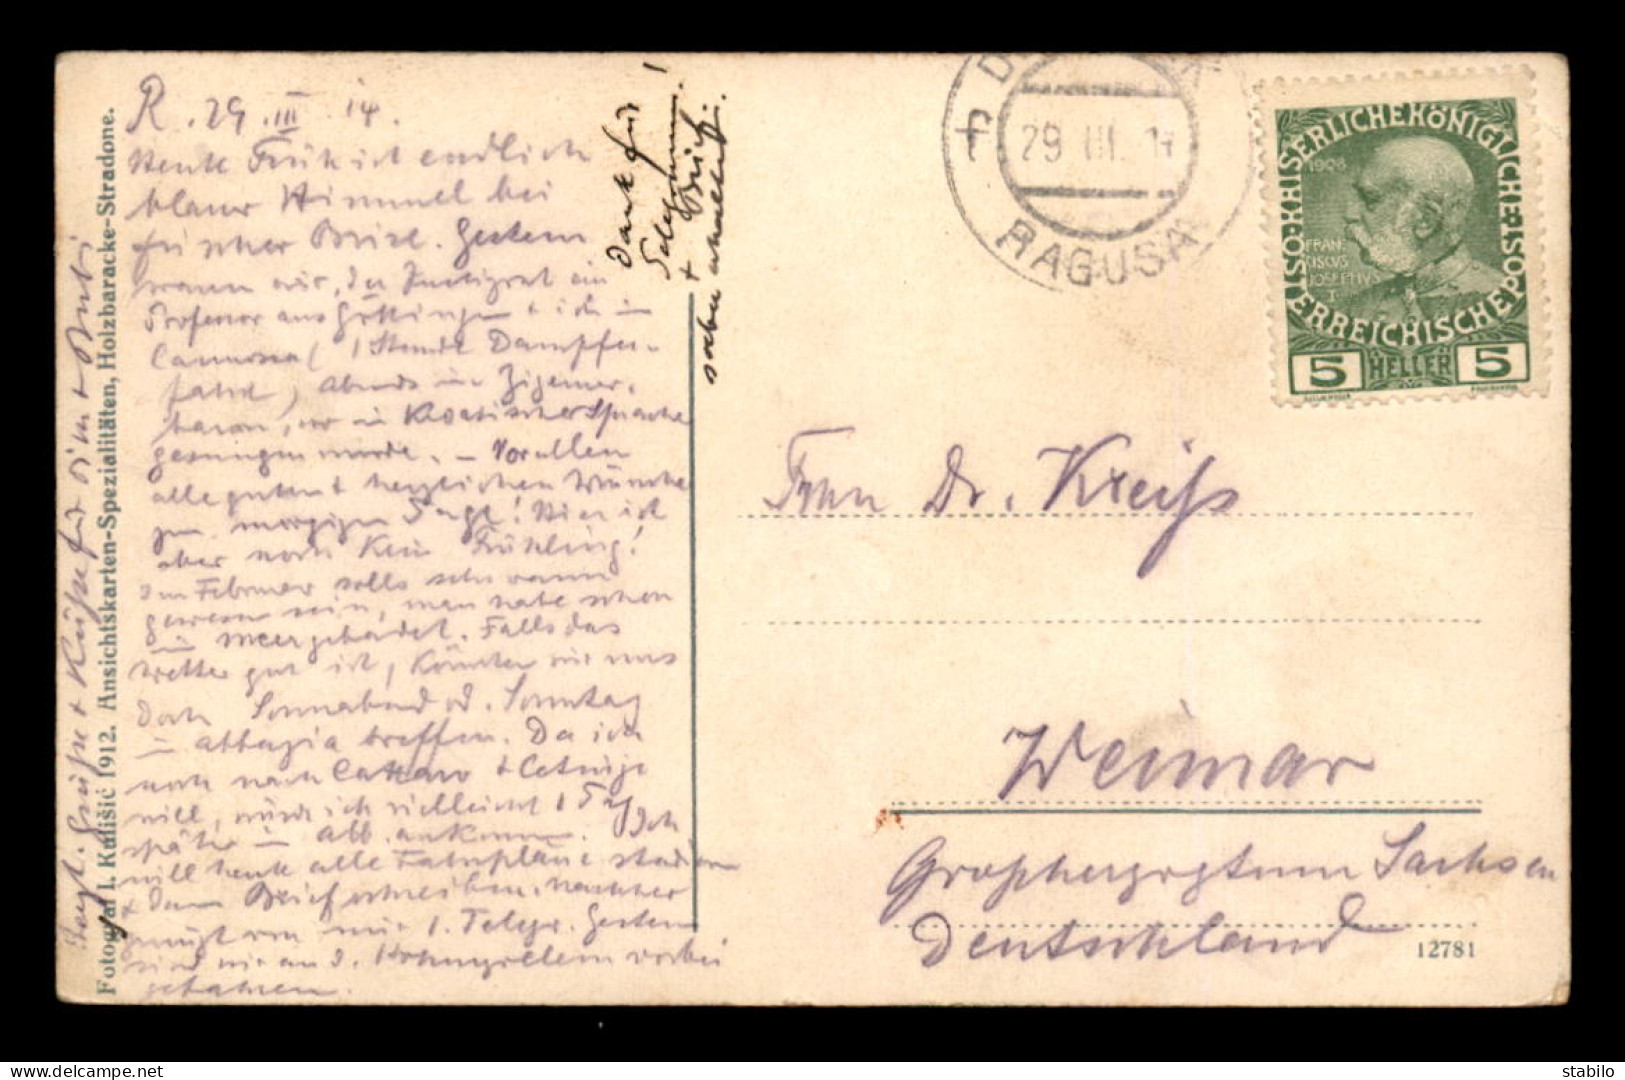 R. 29. III. 14.
Heute Früh ist endlich
blauer Himmel bei
frischer Brise. Gestern
waren wir, der Justizrat ein
Professor aus Göttingen + ich in
Cannosa (1 Stunde Dampfer-
fahrt), Abends in Zigeuner-
baron, wo in Kroatischer Sprache
gesungen wurde. – Vor allem
alle guten + herzlichen Wünsche
zum morgigen Tage! Hier ist
aber noch kein Frühling!
Im Februar solls sehr warm
gewesen sein, man habe schon
im Meer gebadet. Falls das
Wetter gut ist, könnten wir uns
doch Sonnabend od. Sonntag
in Abbazia treffen. Da ich
noch nach Cattaro + Cetinje
will, würde ich vielleicht 1 Tag
später in Abb. ankommen. Ich
will heute alle Fahrpläne studieren
+ dann Brief schreiben. Nachher
von mir 1. Telegr. Gestern
sind wir an d. Hohenzollern vorbei
gefahren.
Herzl. Grüße + Küsse für Dich + Bubi
Fotograf I. Kulišić 1912. Ansichtskarten-Spezialitäten, Holzbaracke-Stradone.
Dank für
Telegramm!
+ Brief
soeben erhalten!
RAGUSA
29 III 14
KAISERLICHE KÖNIGLICHE ÖSTERREICHISCHE POST
1908
FRANCISCUS
JOSEPHVS
I
5 HELLER 5
Frau Dr. Kreiß
Weimar
Großherzogtum Sachsen
Deutschland
12781